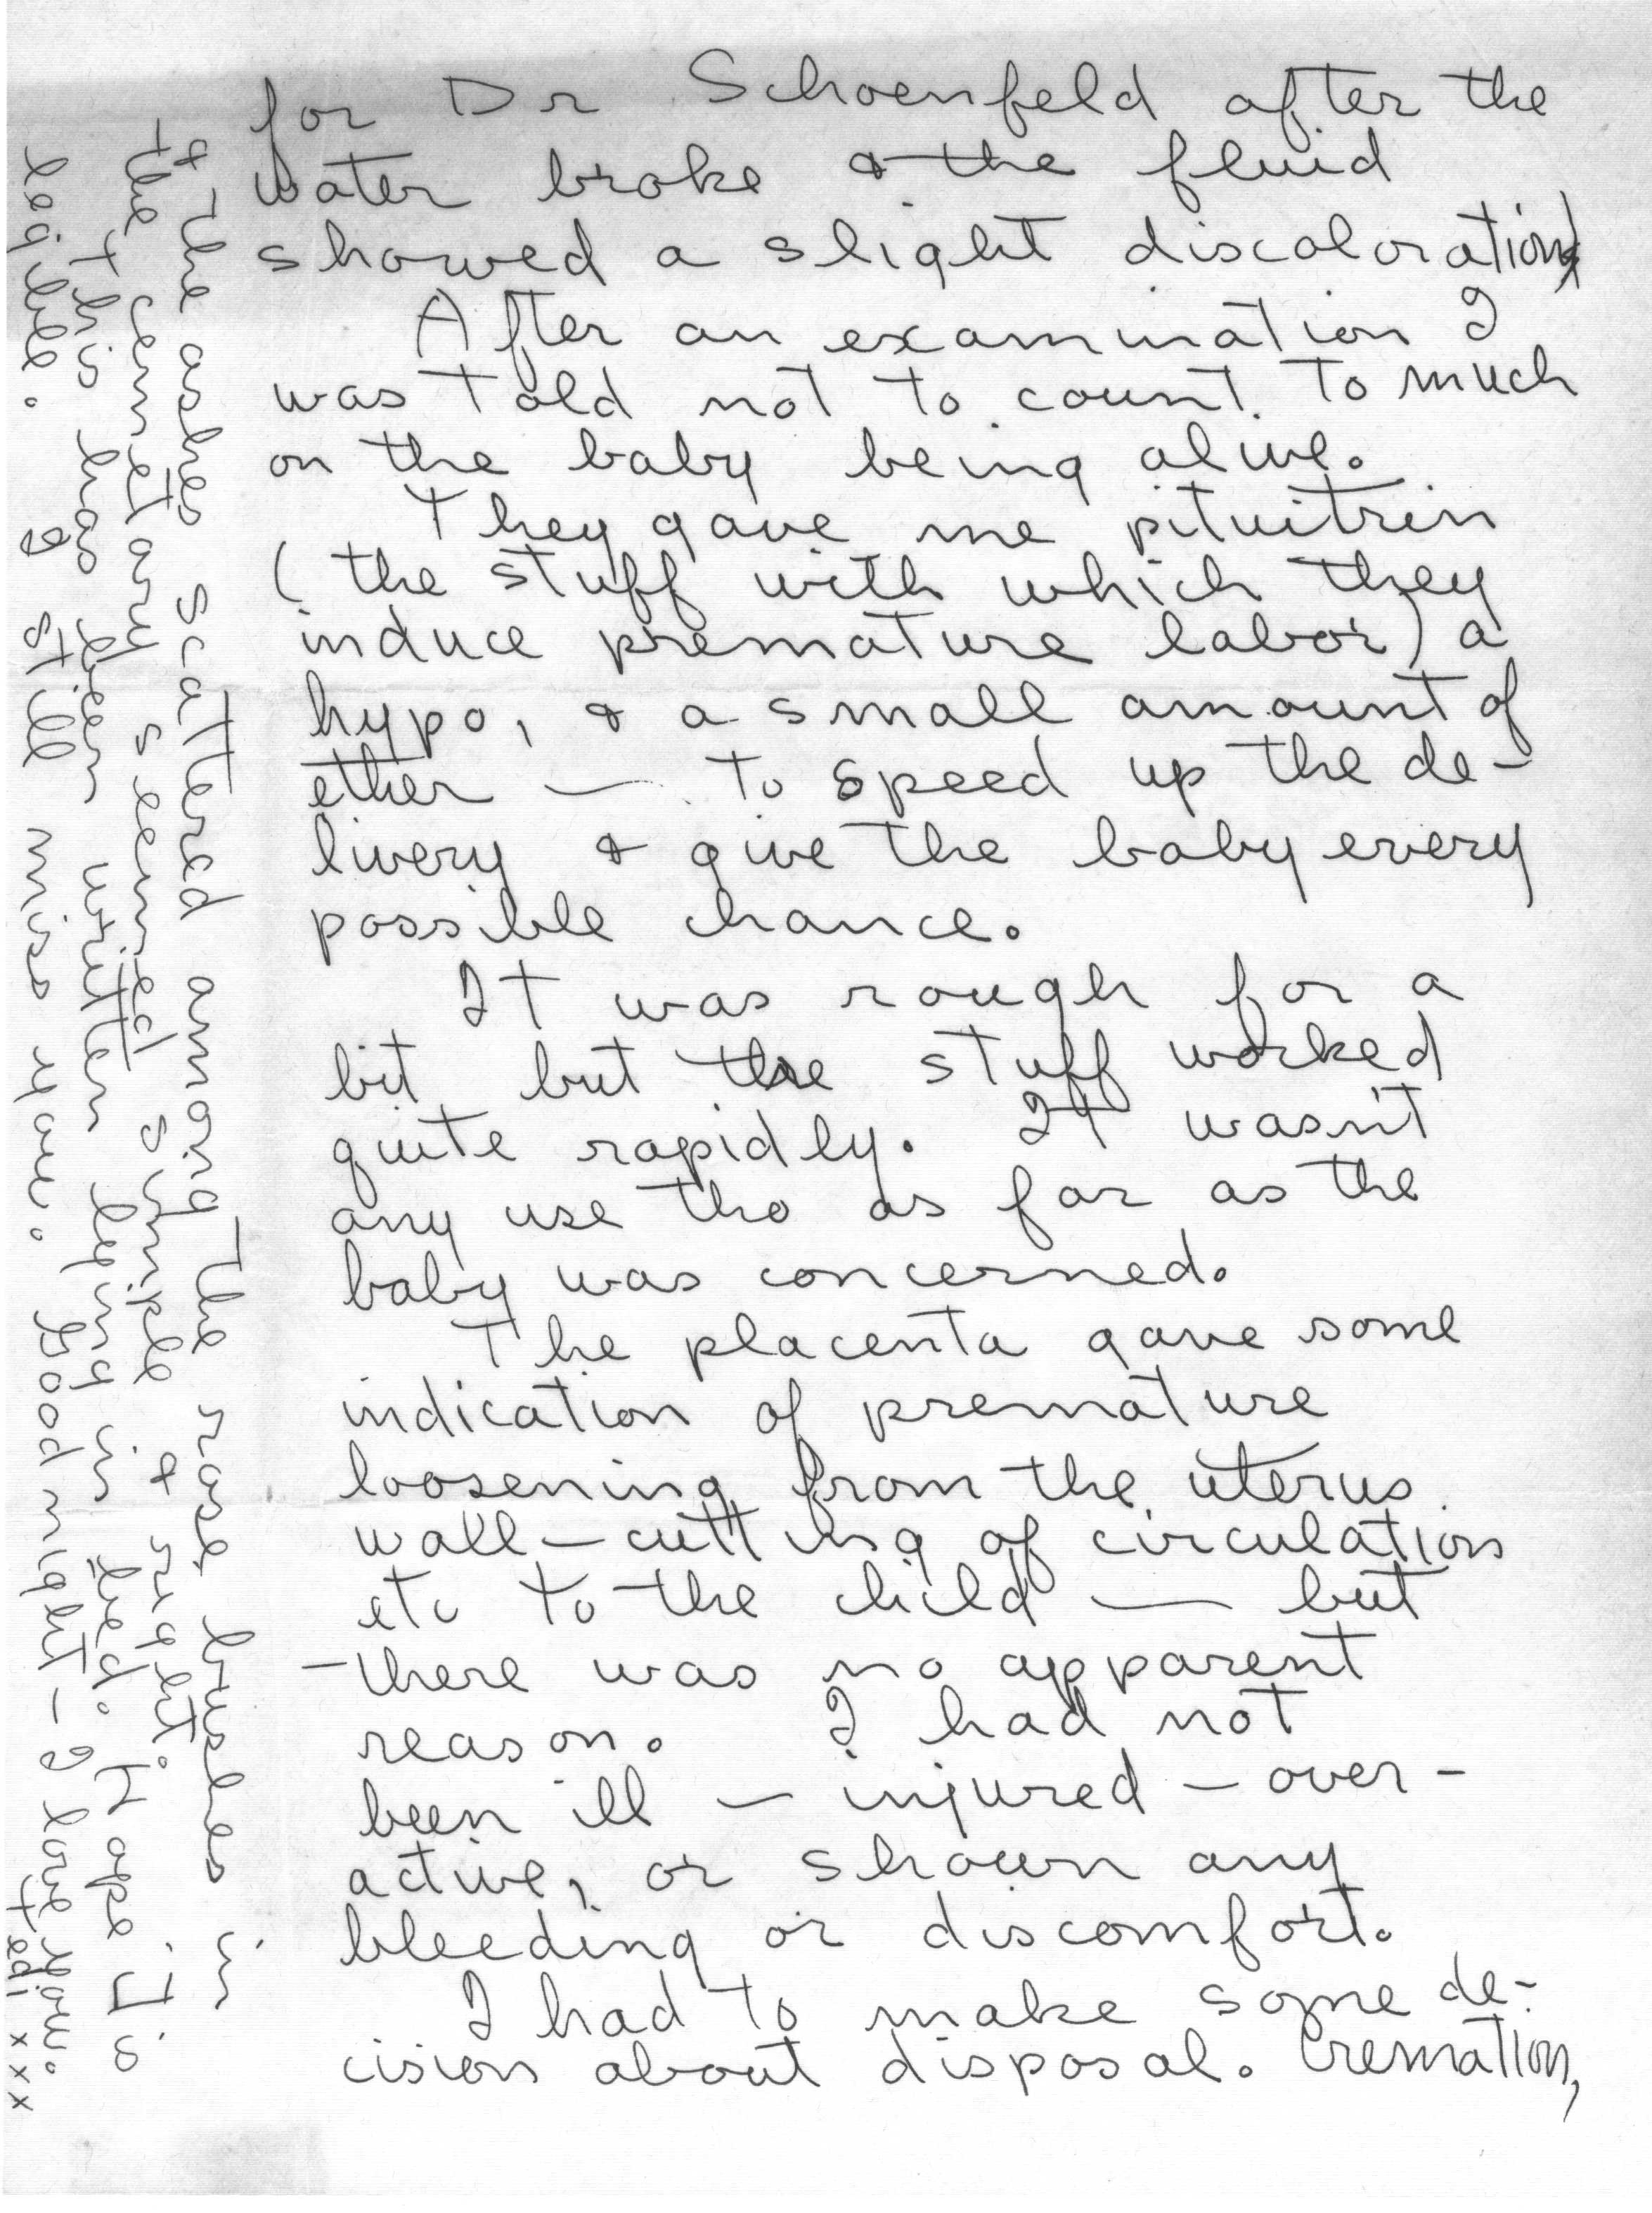 for Dr Schoenfeld after the
water broke & the fluid
showed a slight discoloration)
After an examination I
was told not to count to much
on the baby being alive.
They gave me pituitrin
(the stuff with which they
induce premature labor) a
hypo, & a small amount of
ether — to speed up the de-
livery & give the baby every
possible chance.
It was rough for a
bit but the stuff worked
quite rapidly. It wasn't
any use tho as far as the
baby was concerned.
The placenta gave some
indication of premature
loosening from the uterus
wall — cutting of circulation
etc to the child — but
there was no apparent
reason. I had not
been ill — injured — over-
active, or shown any
bleeding or discomfort.
I had to make some de-
cision about disposal. Cremation,
& the ashes scattered among the rose bushes in
the cemetary seemed simple & right.
this has been written lying in bed. Hope it is
legible. I still miss you. Good night — I love you.
Tedi xxx